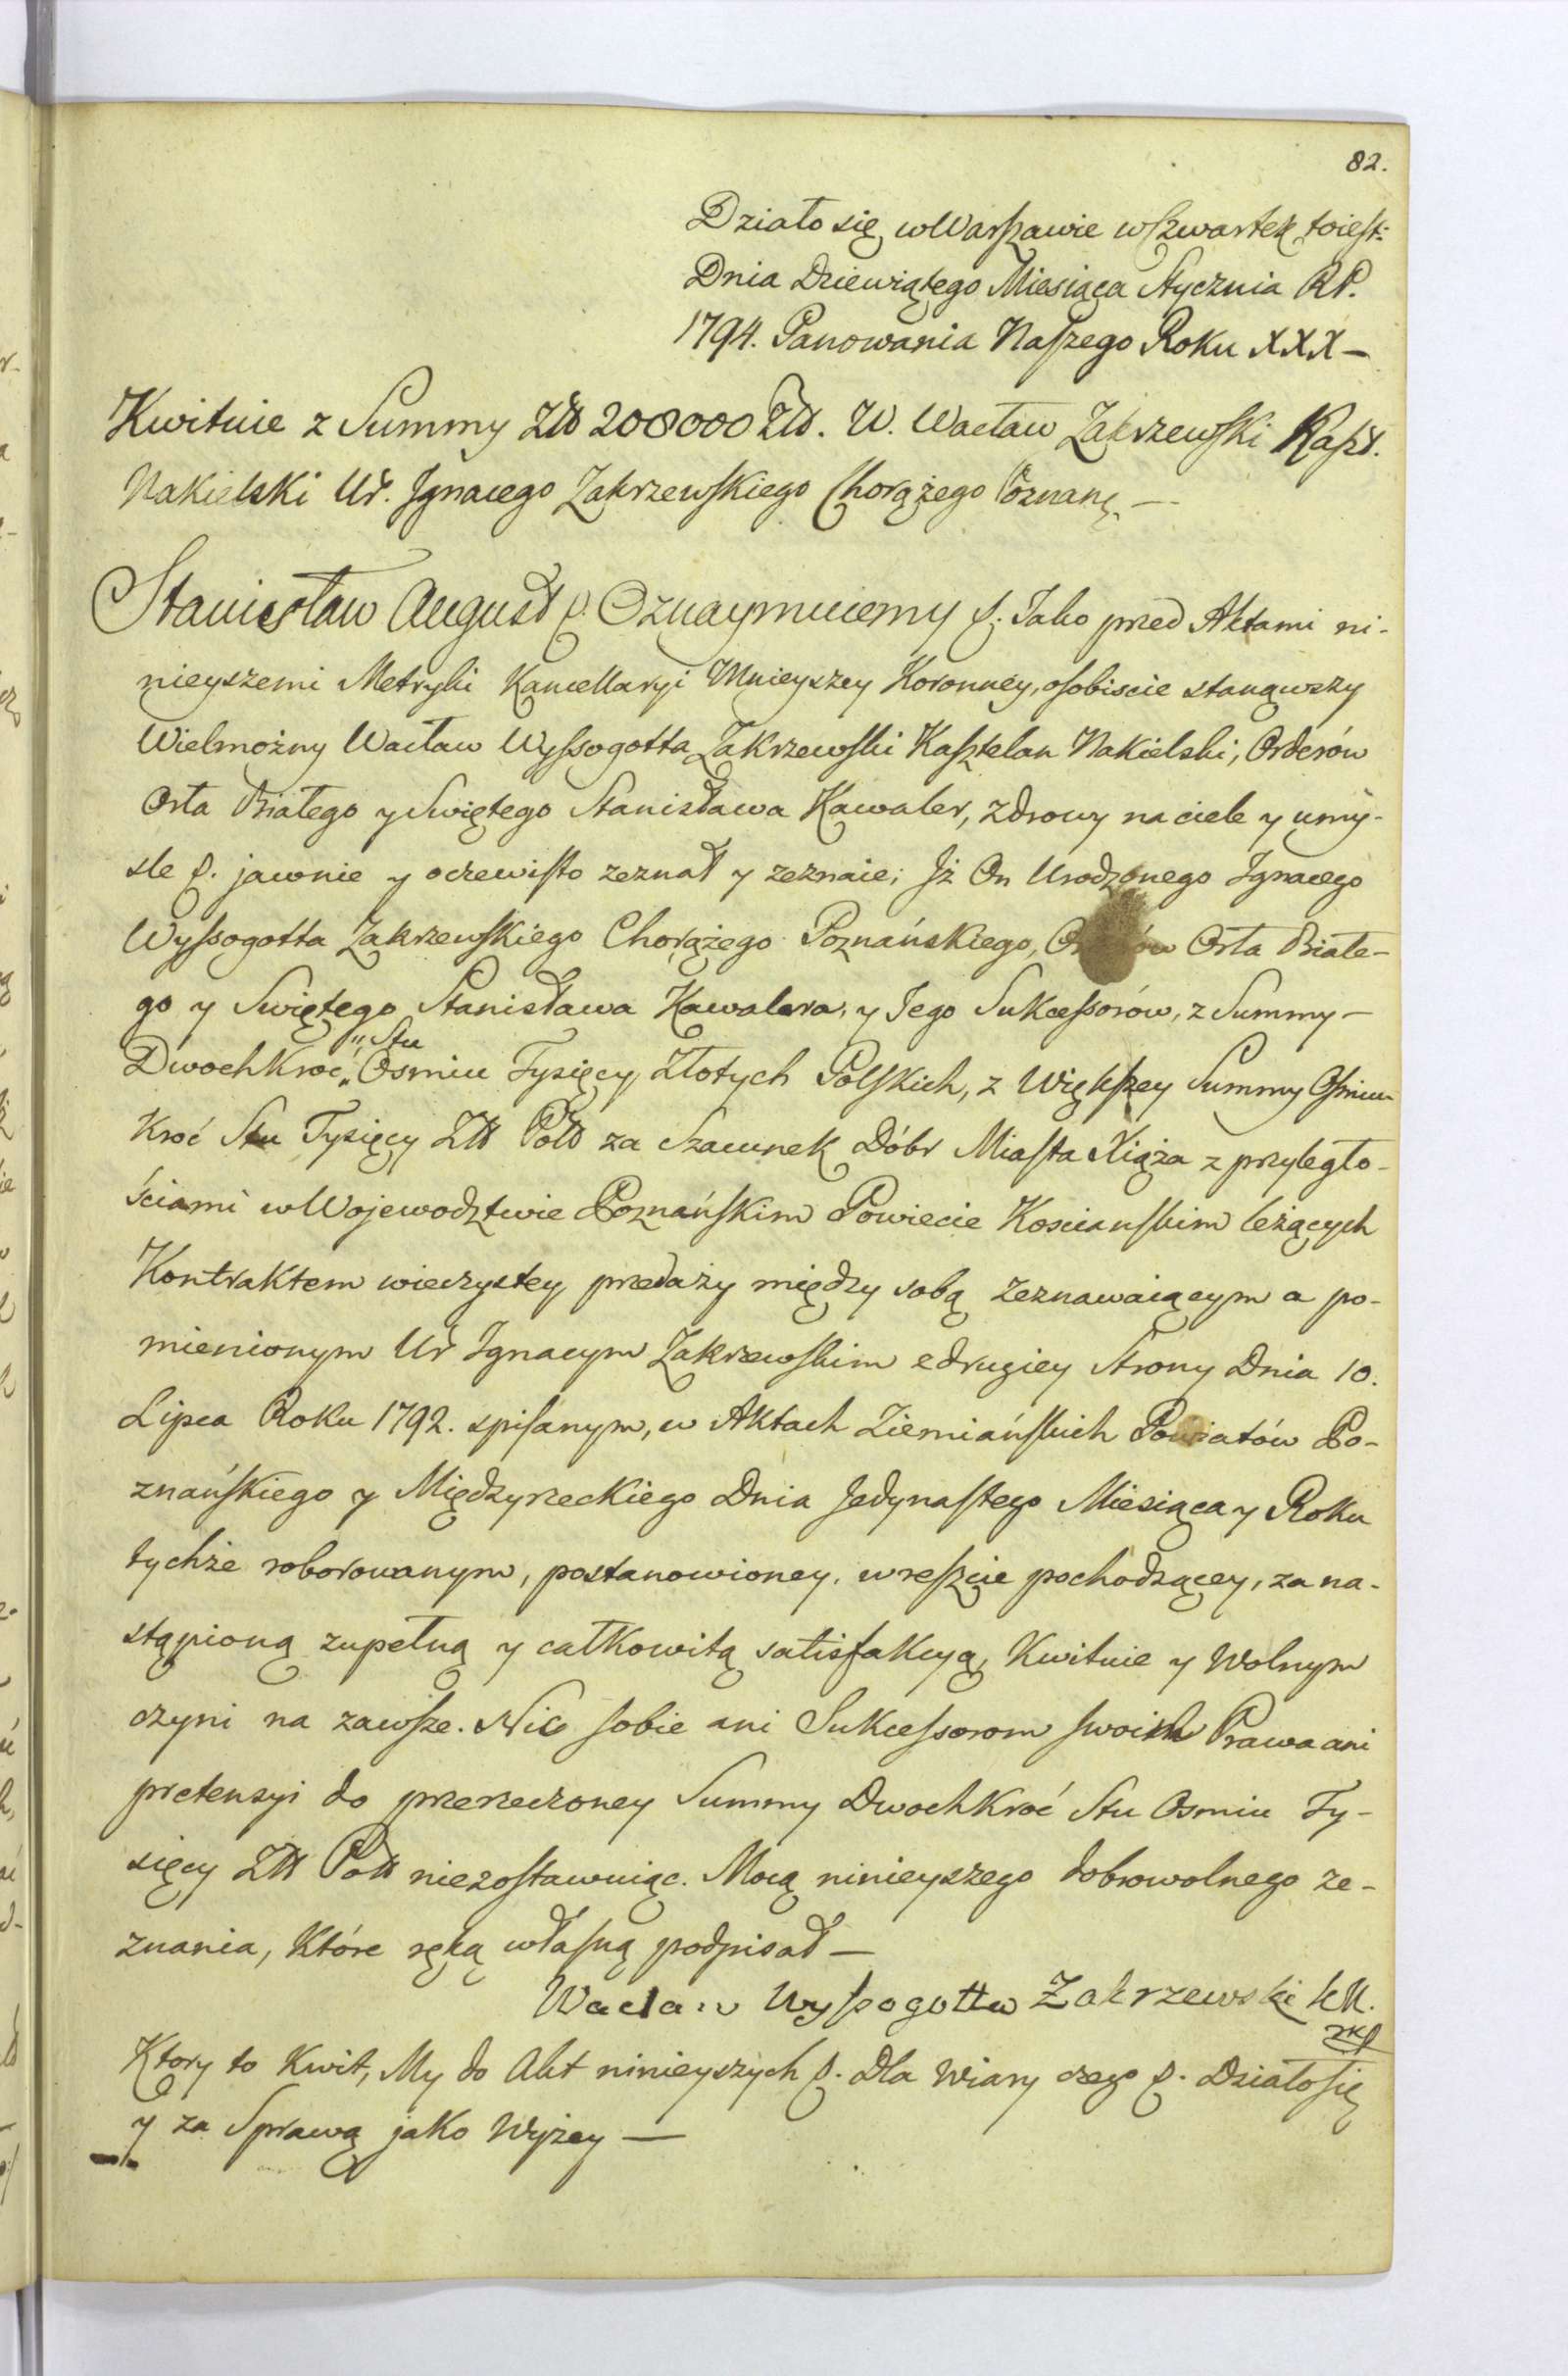 82.
Działo się w Warszawie w Czwartek toiest:
Dnia Dziewiątego Miesiąca Stycznia RP.
1794. Panowania Naszego Roku XXX —
Kwituie z Summy Złł 208000 Złł. W. Wacław Zakrzewski Kaszt.
Nakielski Ur. Ignacego Zakrzewskiego Chorążego Poznań. —
Stanisław August p. Oznaymuiemy p. Jako przed Aktami ni-
nieyszemi Metryki Kancellaryi Mnieyszey Koronney, osobiscie stanąwszy
Wielmożny Wacław Wyssogotta Zakrzewski Kasztelan Nakielski, Orderów
Orła Białego y Swiętego Stanisława Kawaler, zdrowy na ciele y umy-
sle p. jawnie y oczewisto zeznał y zeznaie; Jż On Urodzonego Ignacego
Wyssogotta Zakrzewskiego Chorążego Poznańskiego, Orderów Orła Białe-
go y Swiętego Stanisława Kawalera, y Jego Sukcessorów, z Summy —
Dwochkroć „Stu Osmiu Tysięcy Złotych Polskich, z Większey Summy Osmiu-
kroć Stu Tysięcy Złł Poll za Szacunek Dóbr Miasta Xiąża z przyległo-
ściami w Wojewodztwie Poznańskim Powiecie Kosciańskim leżących
Kontraktem wieczystey przedaży między sobą zeznawaiącym a po-
mienionym Ur Ignacym Zakrzewskim z drugiey Strony Dnia 10.
Lipca Roku 1792. spisanym, w Aktach Ziemiańskich Powiatów Po-
znańskiego y Międzyrzeckiego Dnia Jedynastego Miesiąca y Roku
tychże roborowanym, postanowioney, w reszcie pochodzącey, za na-
stąpioną zupełną y całkowitą satisfakcyą, Kwituie y Wolnym
czyni na zawsze. Nic sobie ani Sukcessorom swoich Prawa ani
pretensyi do przerzeczoney Summy Dwochkroć Stu Osmiu Ty-
sięcy Złł Poll niezostawuiąc. Mocą ninieyszego dobrowolnego ze-
znania, Które ręką własną podpisał —
Waclaw Wyssogotta Zakrzewski KN.
mp
Ktory to Kwit, My do Akt ninieyszych p. Dla Wiary czego p. Działo się
y za Sprawą jako Wyżey —